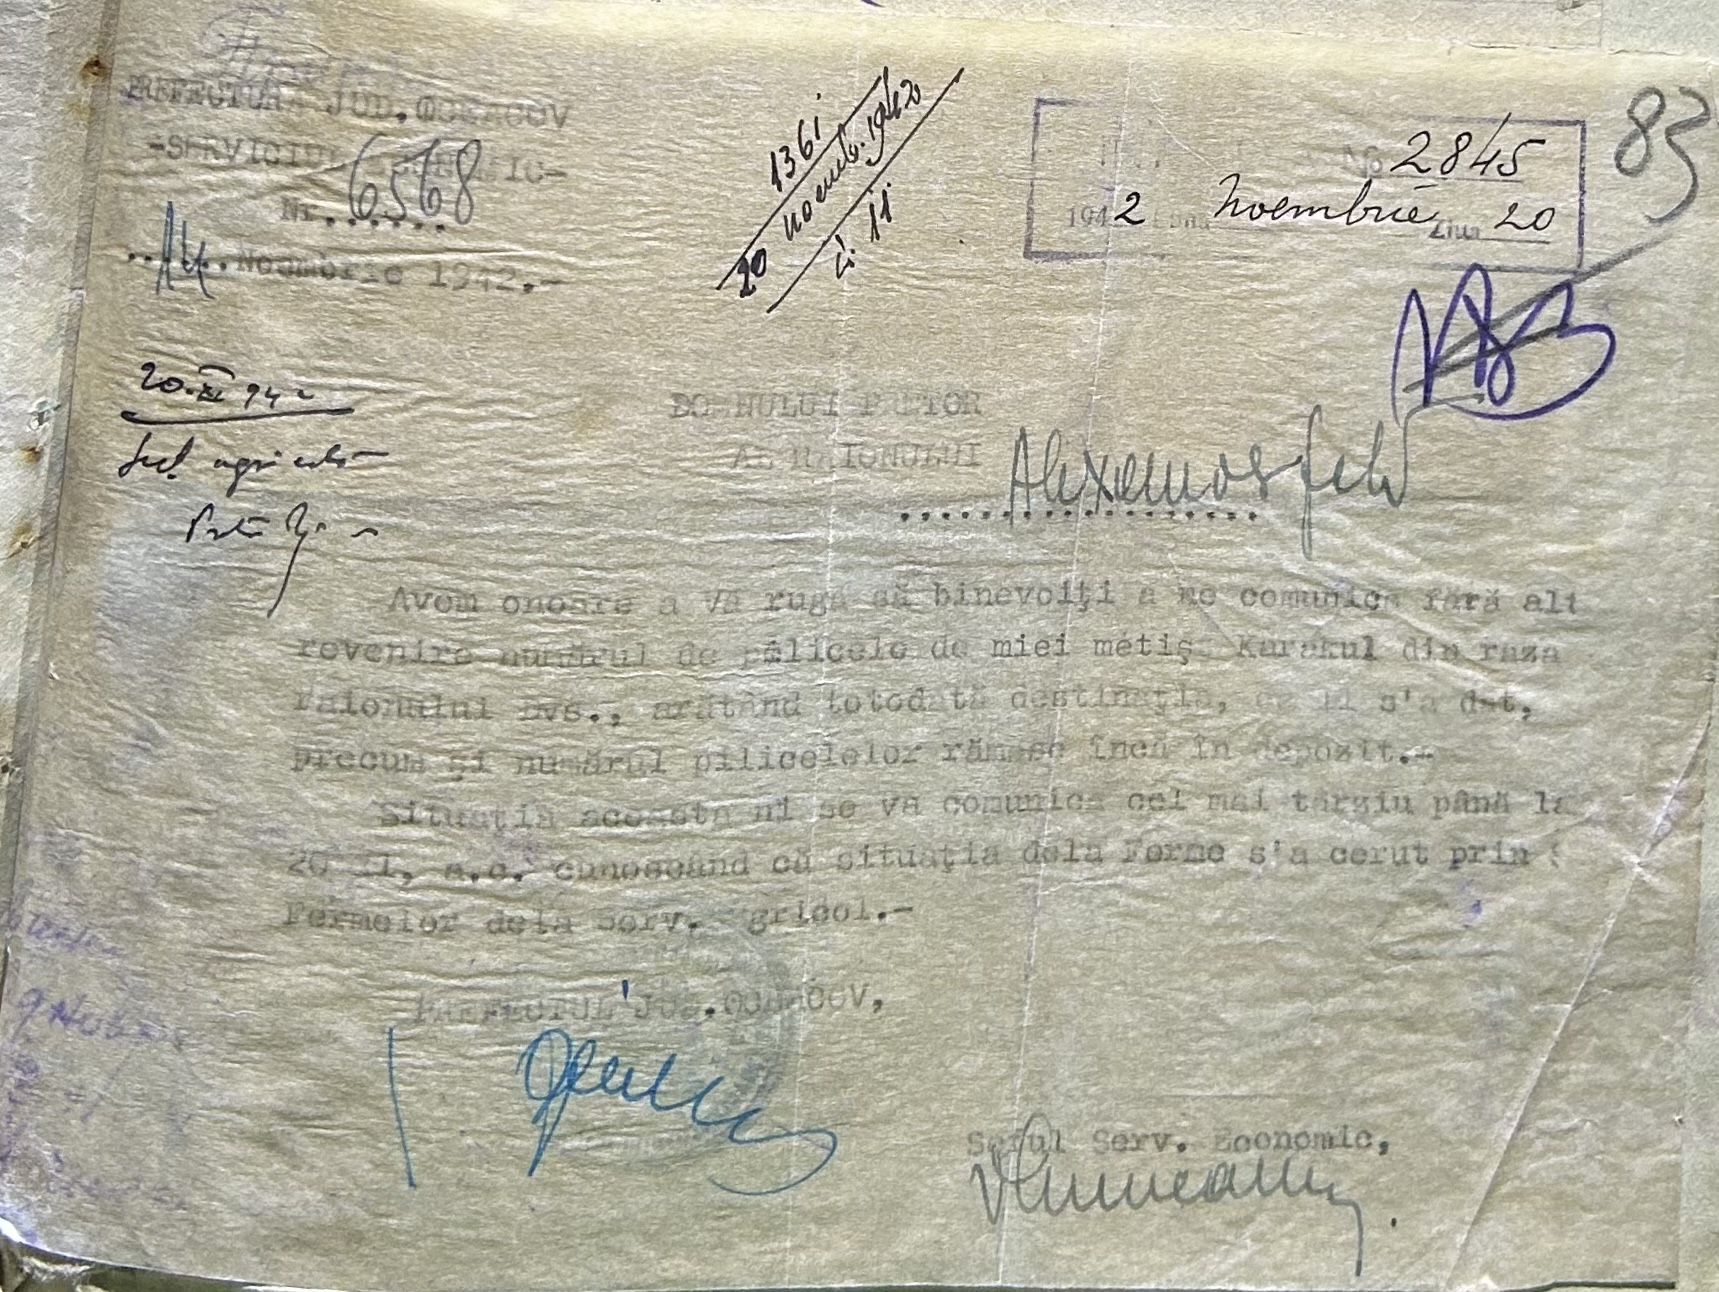 PREFECTURA JUD.OCEACOV
-SERVICIUL ECONOMIC-
Nr. 6568
Noembrie 1942.-
1361
20 noemb. 1942
11
No 2845
1942 Luna Noembrie Ziua 20
83
20.XI 942
DOMNULUI PRETOR
AL RAIONULUI Alexanderfeld
Avem onoare a Vă ruga să binevoiți a ne comunica fără alt
revenire numărul de pélicele de miei metiș Karakul din raza
Raionului Dvs., arătând totodată destinația, ce li s'a dat,
precum și numărul pilicelelor rămase încă în depozit.-
Situația aceasta ni se va comunica cel mai târziu până la
20 II, a.c. cunoscând că situația dela Ferme s'a cerut prin
Fermelor dela Serv. Agricol.-
PREFECTUL JUD.OCEACOV,
Șeful Serv. Economic,